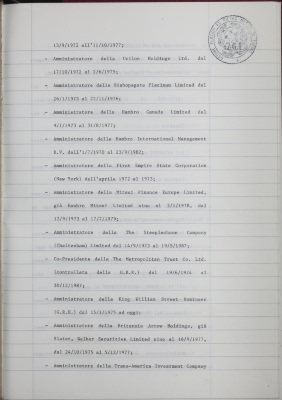 13/9/1972 all'11/10/1977;
- Amministratore della Union Holdings Ltd. dal
17/10/1972 al 2/6/1975;
- Amministratore della Bishopsgate Platinum Limited dal
24/1/1973 al 22/11/1976;
- Amministratore della Hambro Canada Limited dal
9/1/1973 al 31/8/1977;
- Amministratore della Hambro International Management
N.V. dall'1/7/1970 al 23/9/1982;
- Amministratore della First Empire State Corporation
(New York) dall'aprile 1972 al 1973;
- Amministratore della Mitsui Finance Europe Limited,
già Hambro Mitsui Limited sino al 3/1/1978, dal
13/9/1973 al 17/7/1979;
- Amministratore della The Steeplechase Company
(Cheltenham) Limited dal 14/9/1973 al 19/5/1987;
- Co-Presidente della The Metropolitan Trust Co. Ltd.
(controllata della H.B.P.) dal 19/6/1974 al
30/12/1987;
- Amministratore della King William Street Nominees
dal 15/1/1975 ad oggi;
- Amministratore della Britannia Arrow Holdings, già
Slater, Walker Securities Limited sino al 18/9/1977,
dal 24/10/1975 al 5/12/1977;
- Amministratore della Trans-America Investment Company